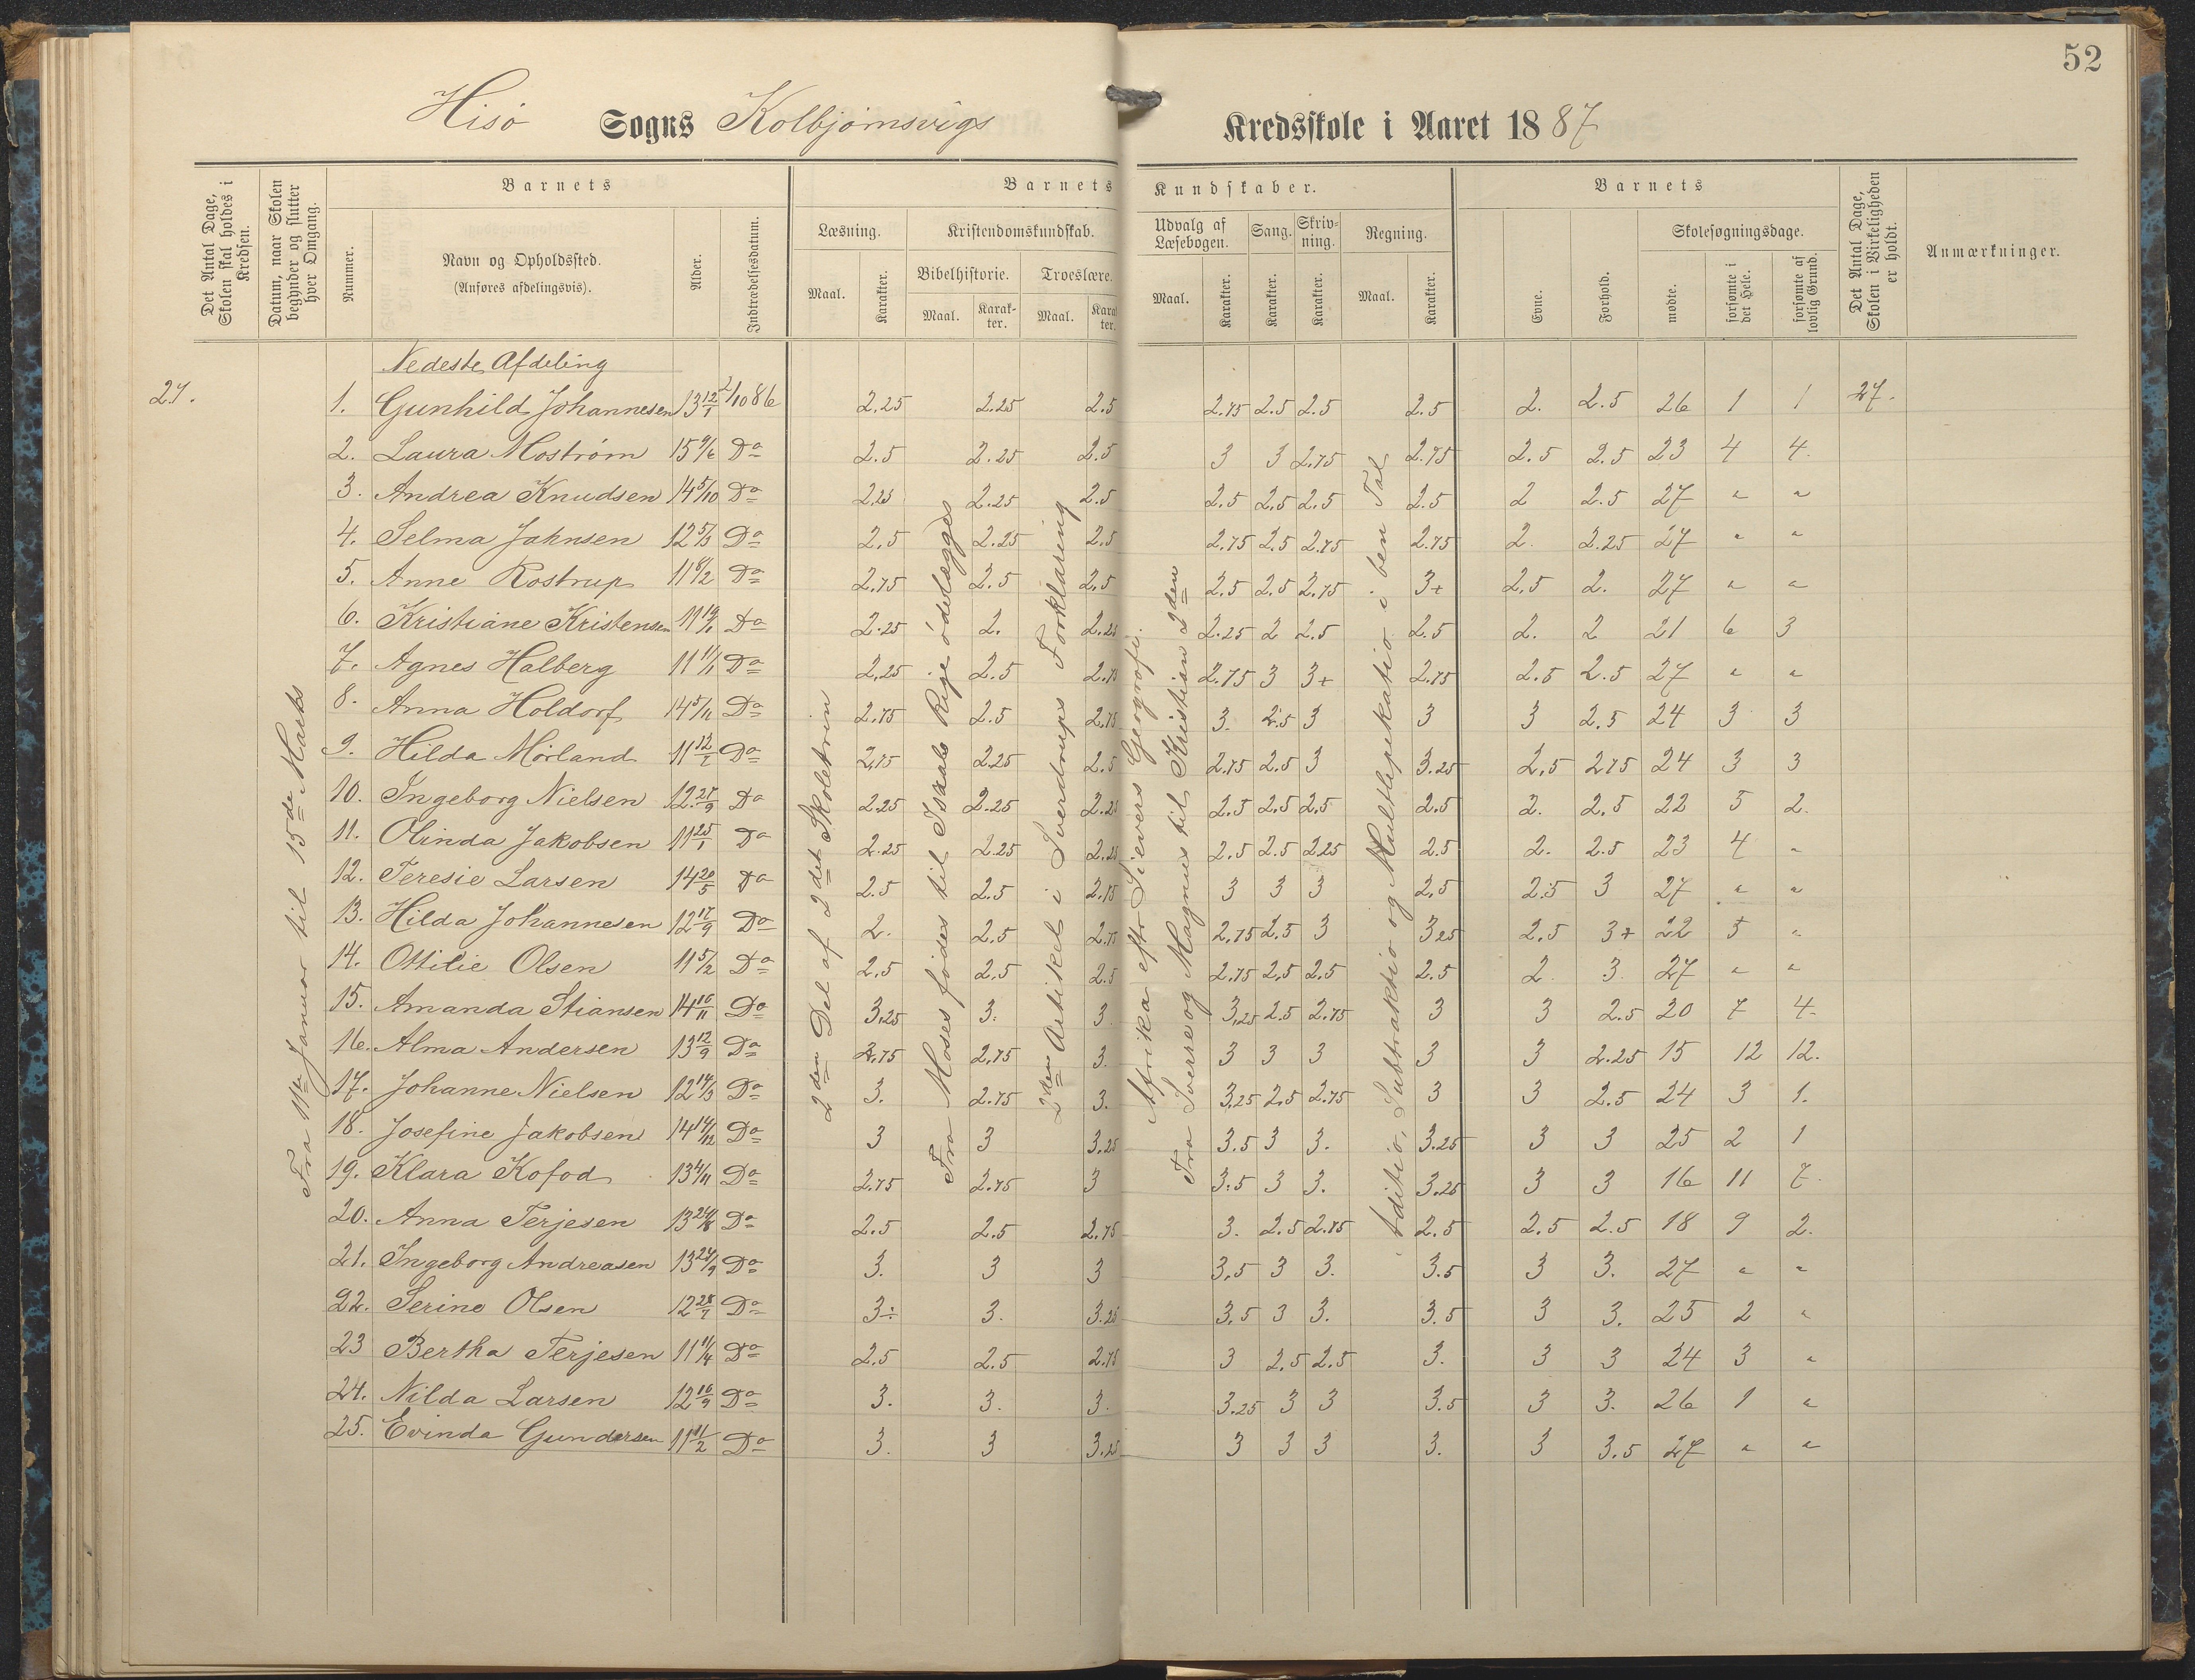 52
Hisö Sogns Kolbjørnsvigs Kredsskole i Aaret 1887
Det Antal Dage, Skolen skal holdes i Kredsen.
Datum, naar Skolen begynder og slutter hver Omgang.
Barnets
Nummer.
Navn og Opholdssted.
(Anføres afdelingsvis).
Alder.
Indtrædelsesdatum.
Barnets Kundskaber.
Læsning.
Maal.
Karakter.
Kristendomskundskab.
Bibelhistorie.
Maal.
Karakter.
Troeslære.
Maal.
Karakter.
Udvalg af Læsebogen.
Maal.
Karakter.
Sang.
Karakter.
Skrivning.
Karakter.
Regning.
Maal.
Karakter.
Barnets
Evne.
Forhold.
Skolesøgningsdage.
mødte.
forsømte i det Hele.
forsømte af lovlig Grund.
Det Antal Dage, Skolen i Virkeligheden er holdt.
Anmærkninger.
Nedeste Afdeling
27. 1. Gunhild Johannesen 13 12/1 2/10 86 2.25 2.25 2.5 2.75 2.5 2.5 2.5 2. 2.5 26 1 1 27.
2. Laura Mostrøm 15 9/6 Do 2.5 2.25 2.5 3 3 2.75 2.75 2.5 2.5 23 4 4.
3. Andrea Knudsen 14 5/10 Do 2.25 2.25 2.5 2.5 2.5 2.5 2.5 2 2.5 27 " "
4. Selma Jahnsen 12 5/3 Do 2.5 2.25 2.5 2.75 2.5 2.75 2.75 2. 2.25 27 " "
5. Anne Rostrup 11 8/2 Do 2.75 2.5 2.5 2.5 2.5 2.75 3+ 2.5 2. 27 " "
6. Kristiane Kristensen 11 19/1 Do 2.25 2. 2.25 2.25 2 2.5 2.5 2. 2 21 6 3
7. Agnes Halberg 11 11/1 Do 2.25 2.5 2.75 2.75 3 3+ 2.75 2.5 2.5 27 " "
8. Anna Holdorf 14 5/11 Do 2.75 2.5 2.75 3. 2.5 3 3 3 2.5 24 3 3
9. Hilda Mørland 11 12/1 Do 2.75 2.25 2.5 2.75 2.5 3 3.25 2.5 2.75 24 3 3
10. Ingeborg Nielsen 12 27/9 Do 2.25 2.25 2.25 2.5 2.5 2.5 2.5 2. 2.5 22 5 2.
11. Olinda Jakobsen 11 25/1 Do 2.25 2.25 2.25 2.5 2.5 2.25 2.5 2. 2.5 23 4 "
12. Teresie Larsen 14 20/5 Do 2.5 2.5 2.75 3 3 3 2.5 2.5 3 27 " "
13. Hilda Johannesen 12 17/9 Do 2. 2.5 2.75 2.75 2.5 3 3.25 2.5 3+ 22 5 "
14. Ottilie Olsen 11 5/2 Do 2.5 2.5 2.5 2.75 2.5 2.5 2.5 2. 3. 27 " "
15. Amanda Stiansen 14 16/11 Do 3.25 3. 3. 3.25 2.5 2.75 3 3 2.5 20 7 4.
16. Alma Andersen 13 12/9 Do 2.75 2.75 3. 3 3 3 3 3 2.25 15 12 12.
17. Johanne Nielsen 12 14/3 Do 3. 2.75 3. 3.25 2.5 2.75 3 3 2.5 24 3 1.
18. Josefine Jakobsen 14 14/12 Do 3 3 3.25 3.5 3 3. 3.25 3 3 25 2 1
19. Klara Kofod 13 4/11 Do 2.75 2.75 3 3.5 3 3. 3.25 3 3 16 11 7.
20. Anna Terjesen 13 24/8 Do 2.5 2.5 2.75 3. 2.5 2.75 2.5 2.5 2.5 18 9 2.
21. Ingeborg Andreasen 13 24/9 Do 3. 3 3 3.5 3 3. 3.5 3 3. 27 " "
22. Serine Olsen 12 28/7 Do 3÷ 3. 3.25 3.5 3 3. 3.5 3 3. 25 2 "
23 Bertha Terjesen 11 11/4 Do 2.5 2.5 2.75 3 2.5 2.5 3. 3 3 24 3 "
24. Nilda Larsen 12 16/9 Do 3. 3. 3. 3.25 3 3 3.5 3 3. 26 1 "
25. Evinda Gundersen 11 11/2 Do 3. 3 3.25 3 3 3 3. 3 3.5 27 " "
Fra 11te Januar til 15de Marts
2den Del af 2det Skoletrin
Fra Moses fødes til Israels Rige ødelægges
2den Artikel i Sverdrups Forklaring
Afrika eftr Sievers Geografi.
Fra Sverre og Magnus til Kristian 2den
Aditio, Subtraktio og Multlipikatio i ben Tal